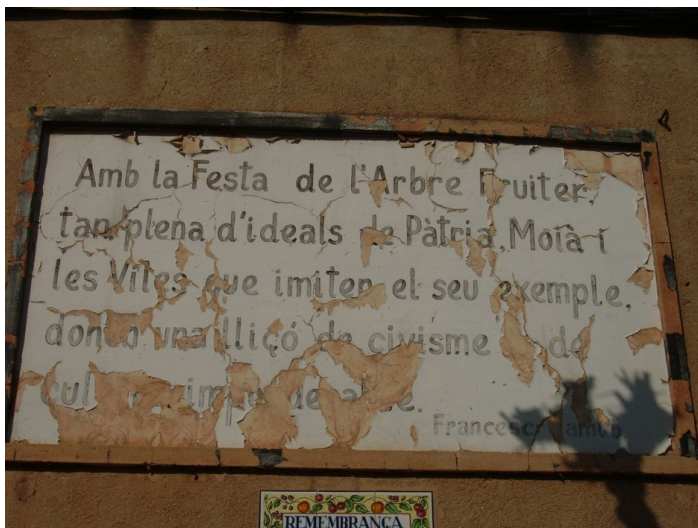 Amb la Festa de l'Arbre Fruiter,
tan plena d'ideals de Pàtria, Moià i
les Viles que imiten el seu exemple,
donen una lliçó de civisme de
Francesc Cambó
REMEMBRANÇA